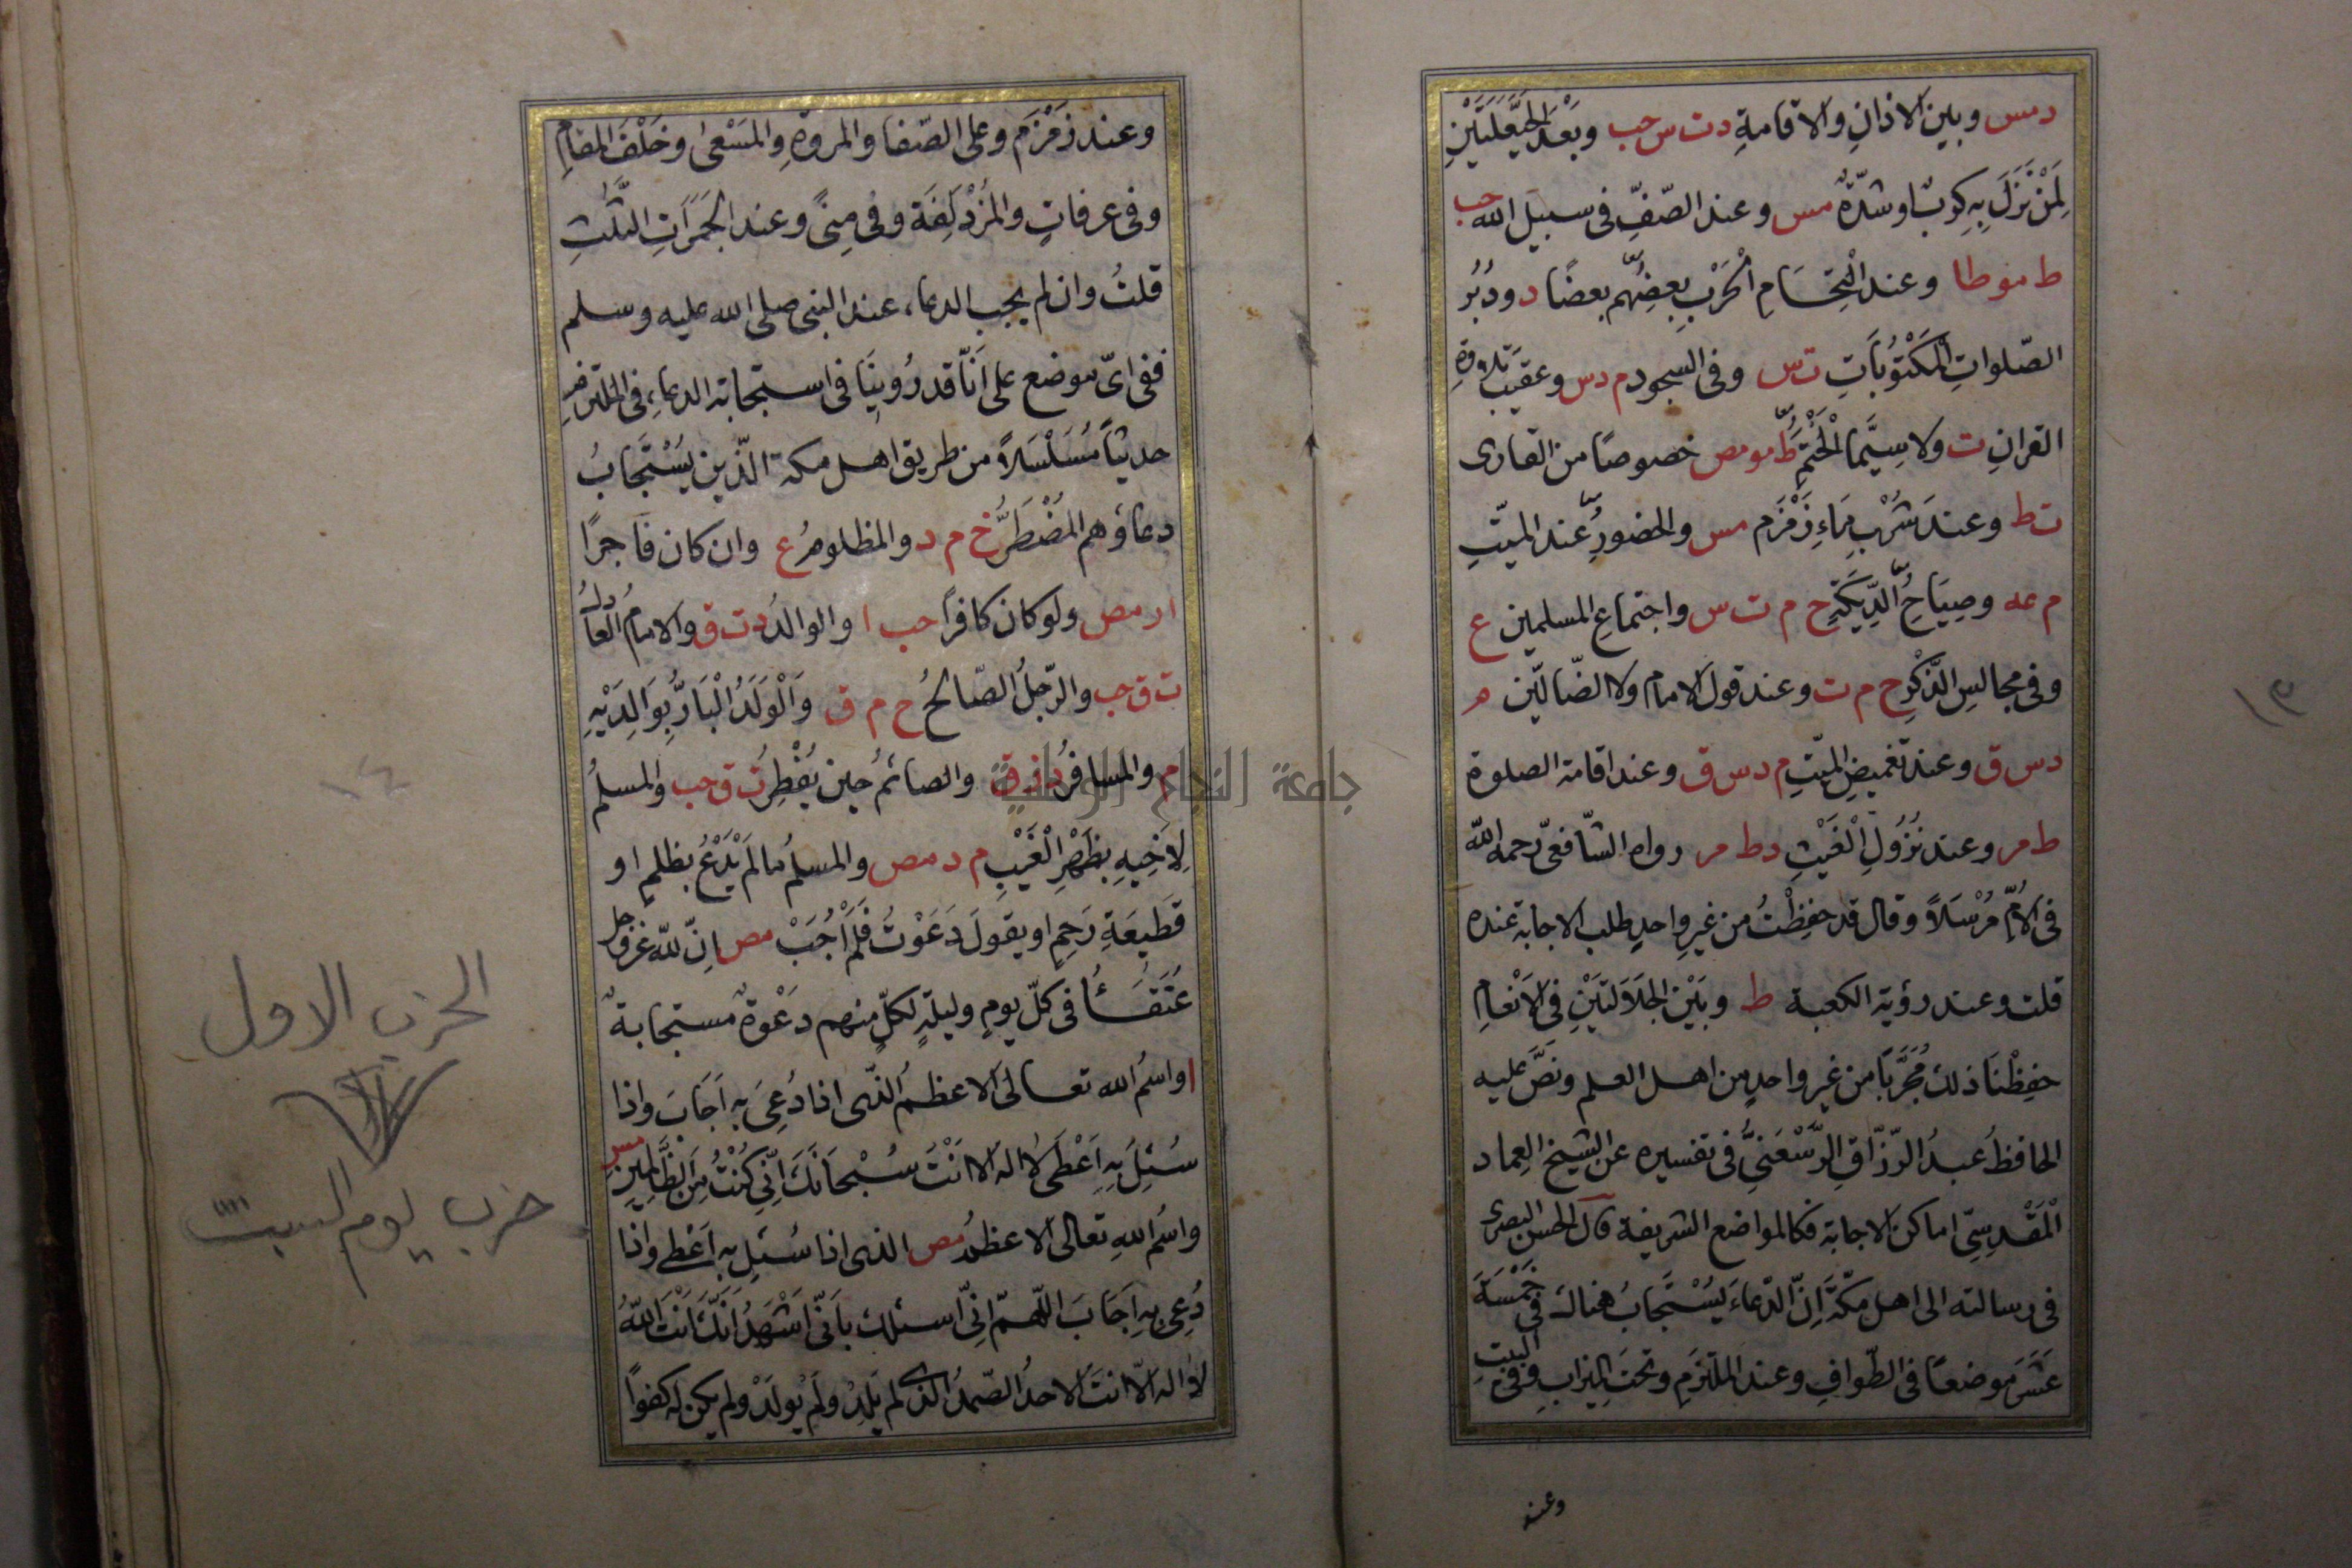 د مس وبين الاذانِ والاقامةِ د ت س حب وبَعْدَ الحَيْعَلَتَيْنِ
لِمَنْ نَزَلَ بِهِ كربٌ او شدّةٌ مس وعند الصّفِّ فى سبيل الله حب
ط موطا وعند الْتِحَامِ الْحَرْبِ بعضِهُم بعضًا د ودُبُرَ
الصّلواتِ الْمَكْتُوُبَاتِ ت س وفى السجود م د س وعقيبَ تلاوة
القرانِ ت ولا سِيَّما الْخَتْمِ ط مو مص خصوصًا من القارى
ت ط وعندَ شُرْبِ مَاءِ زَمْزَم مس والحضورُ عند الميّتِ
م عه وصِيَاحُ الدِّيَكَةِ خ م ت س واجتماعِ المسلمين ع
وفى مجالسِ الذّكْرِ خ م ت وعند قول الامام ولا الضّالّين م
د س ق وعند تغميضِ الميّتِ م د س ق وعند اقامة الصلوة
ط مر وعند نُزُولِ الْغَيْثِ د ط مر رواه الشّافعىّ رحمه الله
فى الاُمّ مُرْسَلاً وقال قد حفِظْتُ من غيرِ واحدٍ طلب الاجابة عنده
قلت وعند رؤية الكعبة ط وبَيْنَ الجَلاَلَتَيْنِ فى الاَنْعامِ
حفِظْنَا ذلك مُجَرَّبًا من غير واحدٍ من اهل العلم ونَصَّ عليه
الحافظُ عبدُ الرّزّاقِ الرَّسْعَنِيُّ فى تفسيره عن الشيخ العِماد
الْمَقْدِسِيّ اماكن الاجابة فكالمواضع الشريفة قال الحسن البصرى
فى رسالته الى اهل مكّةَ اِنّ الدّعاءَ يُسْتَجابُ هناك فى خَمْسَةَ
عَشَرَ موضعًا فى الطّوافِ وعند الملتزَمِ وتحتَ الميزابِ وفى البيتِ
وعند
١٣
وعند زَمْزَم وعلى الصّفا والمروةِ والمَسْعىٰ وخَلْفَ المقامِ
وفى عرفاتٍ والمُزْدَلِفَة وفى مِنىً وعند الجَمَرَاتِ الثّلٰثِ
قلتُ وان لم يجب الدعاء عند النبى صلى الله عليه وسلم
ففى اىّ موضع على اَنّا قد رُوِينَا فى استجابة الدعاءِ فى الملتزمِ
حديثاً مُسَلْسَلاً من طريق اهل مكة الذّين يُسْتَجَابُ
دعاؤهم المُضْطَرُّ خ م د والمظلومُ ع وان كان فَاجرًا
ا ر مص ولو كان كافرًا حب ا والوالدُ د ت ق والامامُ العادلُ
ت ق حب والرّجلُ الصّالحُ خ م ق وَالْوَلَدُ الْبَارُّ بِوَالِدَيْهِ
م والمسافرُ د ز ق والصائمُ حين يُفْطِرُ ت ق حب والمسلمُ
لِاَخِيهِ بظَهْرِ الْغَيْبِ م د مص والمسلمُ مالم يَدْعُ بظلمٍ او
قَطيعَةِ رَحِمٍ او يقولَ دَعَوْتُ فَلَمْ اُجَبْ مص اِنّ للّه عز وجل
عُتَقَاءُ فى كلّ يومٍ وليلةٍ لكلّ منهم دَعْوةٌ مستجابةٌ
ا واسمُ الله تعالىٰ الاعظمُ الذّى اذا دُعِىَ بِه اَجَابَ واذا
سُئِلَ بِهِ اَعْطَى لا اله الا انْتَ سُبْحَانَكَ اِنِّي كُنْتُ مِنَ الظَّالِمِينِ مس
واسمُ اللهِ تعالى الاعظمُ مص الذى اذا سُئِلَ بِه اَعْطى واذا
دُعِىَ بِهِ اَجَابَ اللّهمّ اِنّى اسئلك باَنّى اَشْهَدُ اَنّكَ اَنْتَ اللّهُ
لا اله الّا انتَ الاحدُ الصّمدُ الذى لم يَلِدْ ولَم يُولَدْ ولم يكن له كفواً
١٤
الحزب الاول
حزب يوم السبت
جامعة النجاح الوطنية